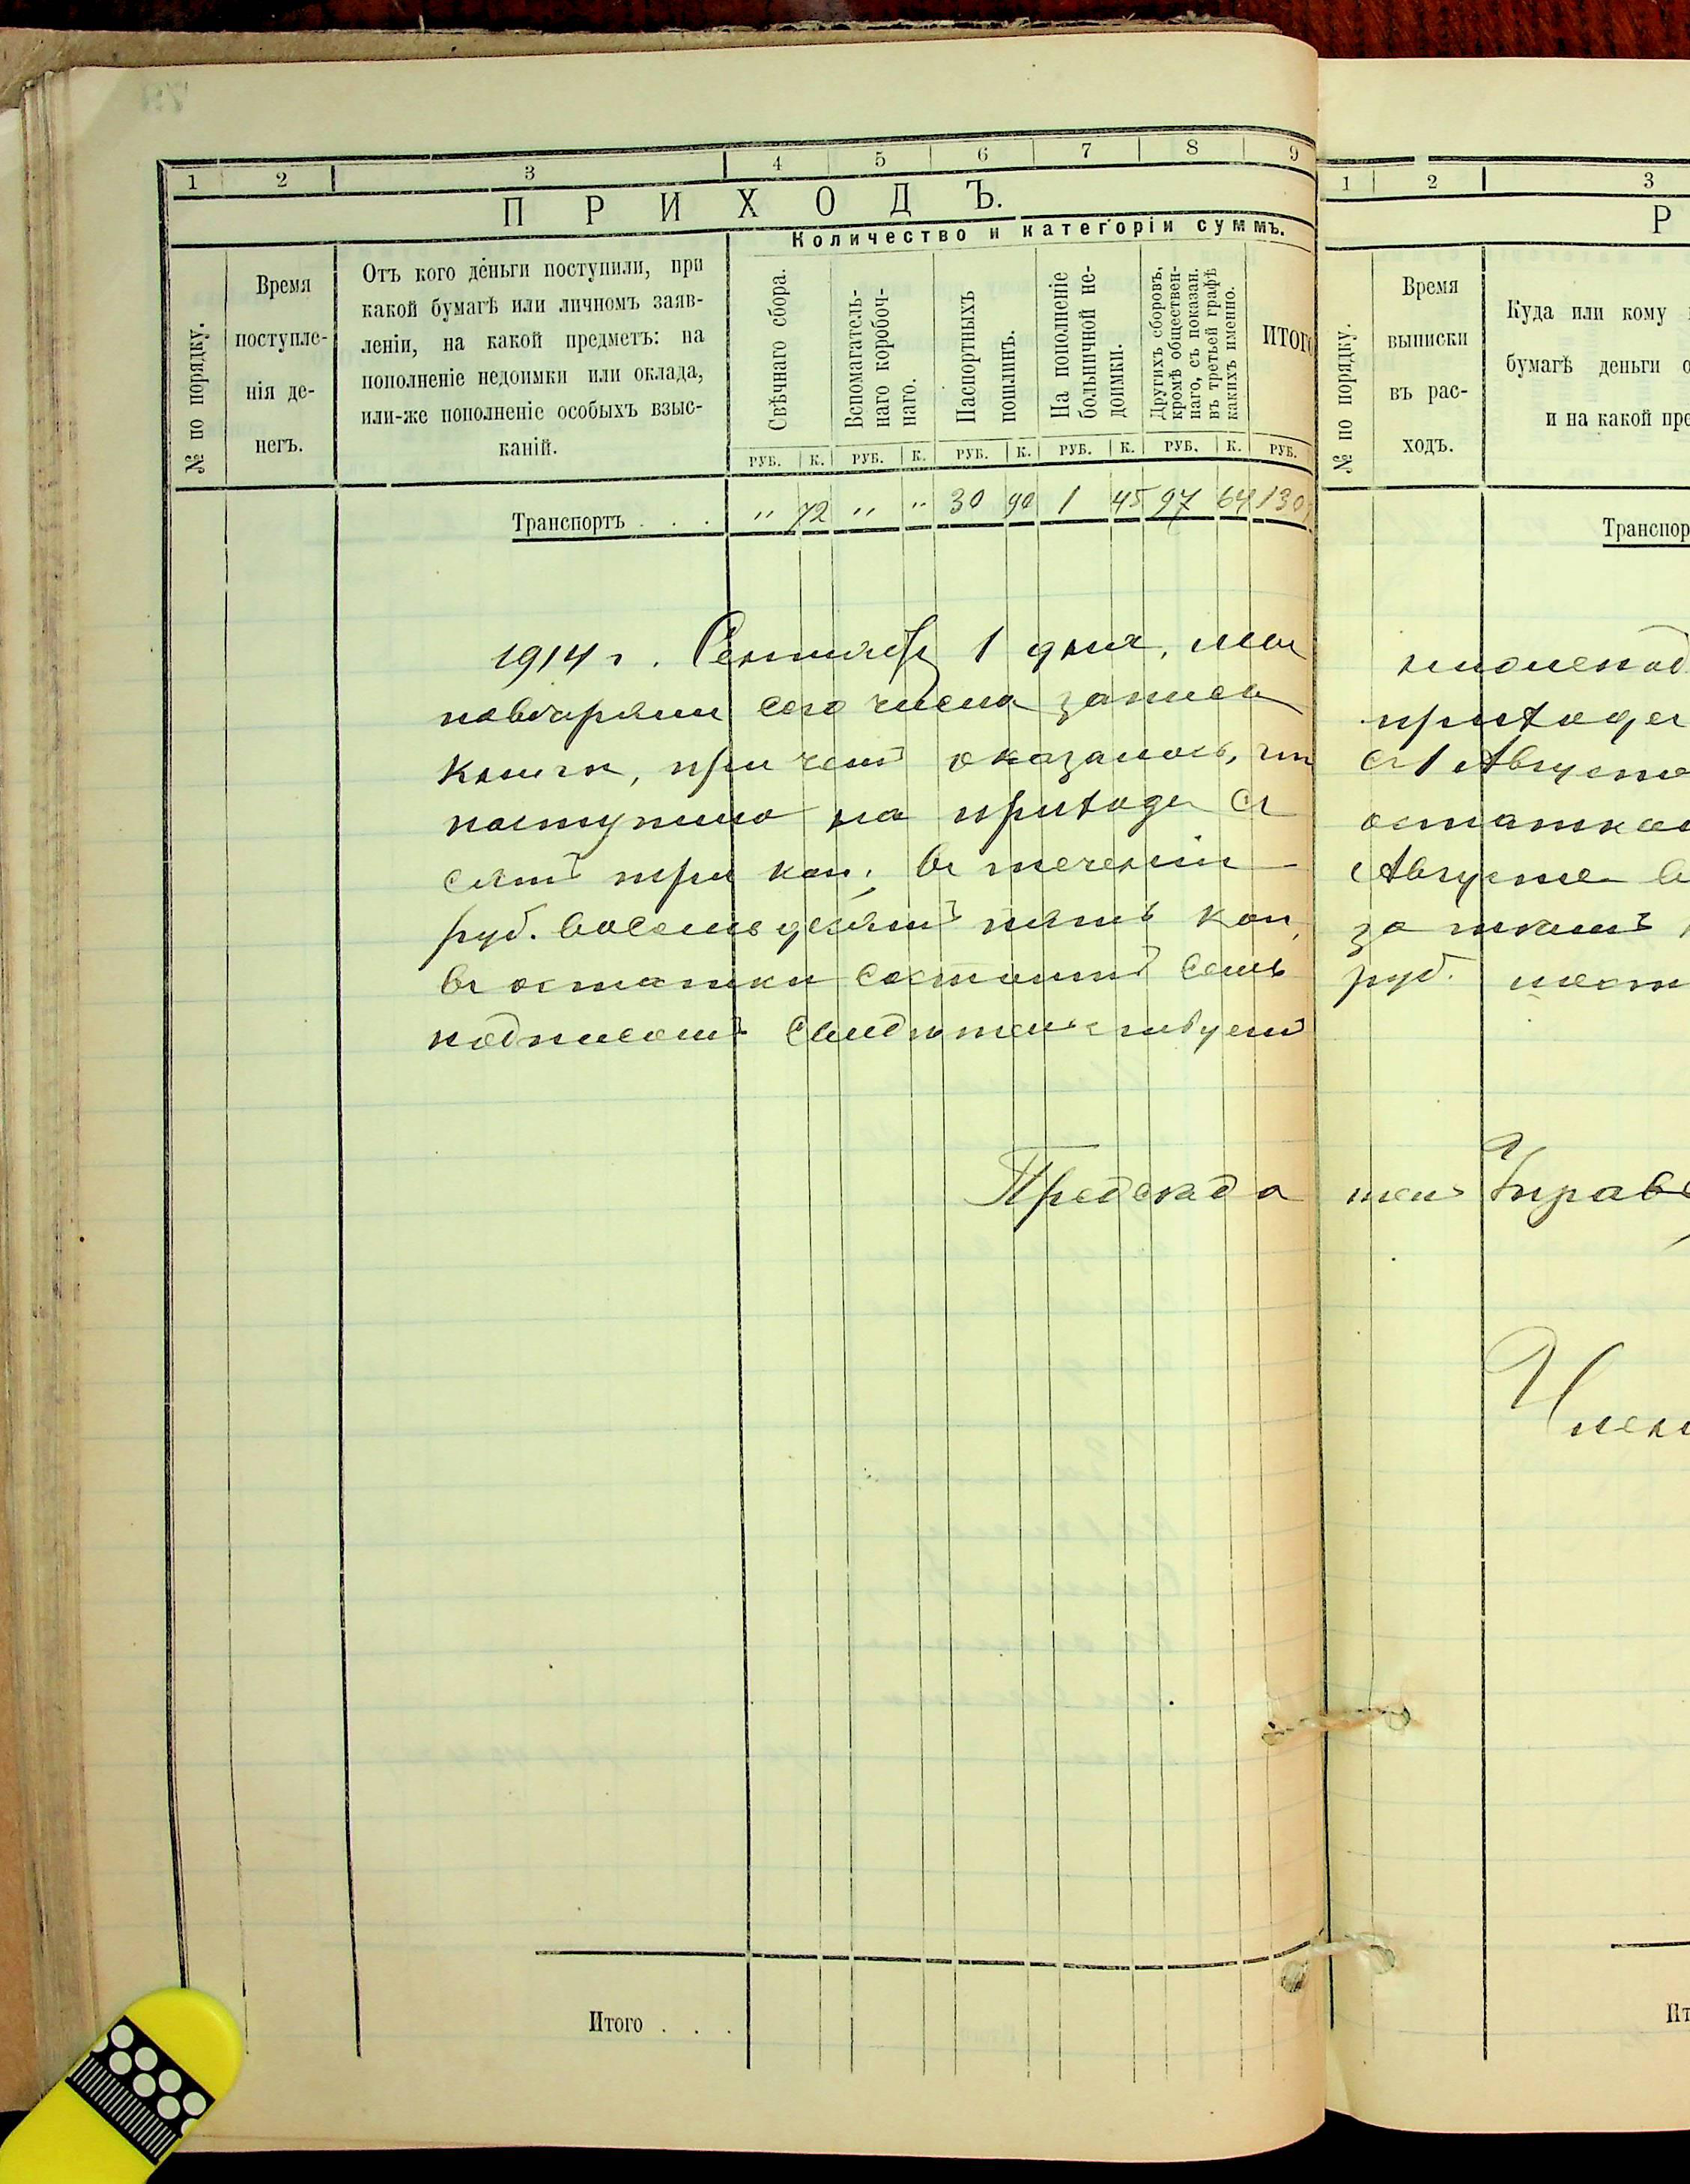 1 2 3 4 5 6 7 8 9
ПРИХОДЪ.
Количество и категоріи суммъ.
№ по порядку.
Время
поступле-
нія де-
негъ.
Отъ кого деньги поступили, при
какой бумагѣ или личномъ заяв-
леніи, на какой предметъ: на
пополненіе недоимки или оклада,
или-же пополненіе особыхъ взыс-
каній.
Свѣчнаго сбора.
Вспомагатель-
наго коробоч-
наго.
Паспортныхъ
пошлинъ.
На пополненіе
больничной не-
доимки.
Другихъ сборовъ,
кромѣ обществен-
наго, съ показан.
въ третьей графѣ
какихъ именно.
ИТОГО
РУБ. К. РУБ. К. РУБ. К. РУБ. К. РУБ. К. РУБ.
Транспортъ . . . " 72 " " 30 90 1 45 97 64 130
1914 г. Сентября 1 дня, мы
повѣряли сего числа записи
книги, при чемъ оказалось, что
поступило на приходъ съ
сятъ три коп., въ теченіи
руб. восемьдесятъ пять коп.,
въ остатки состоитъ семь
подписомъ свидѣтельствуемъ
Предсѣда
Итого . . .
1 2 3
Р
№ по порядку.
Время
выписки
въ рас-
ходъ.
Куда или кому
бумагѣ деньги о
и на какой пре
Транспор
приходъ
съ 1 Августа
остаткомъ
Августе в
за тѣмъ
руб. шест
тель Управ
Член
Ит